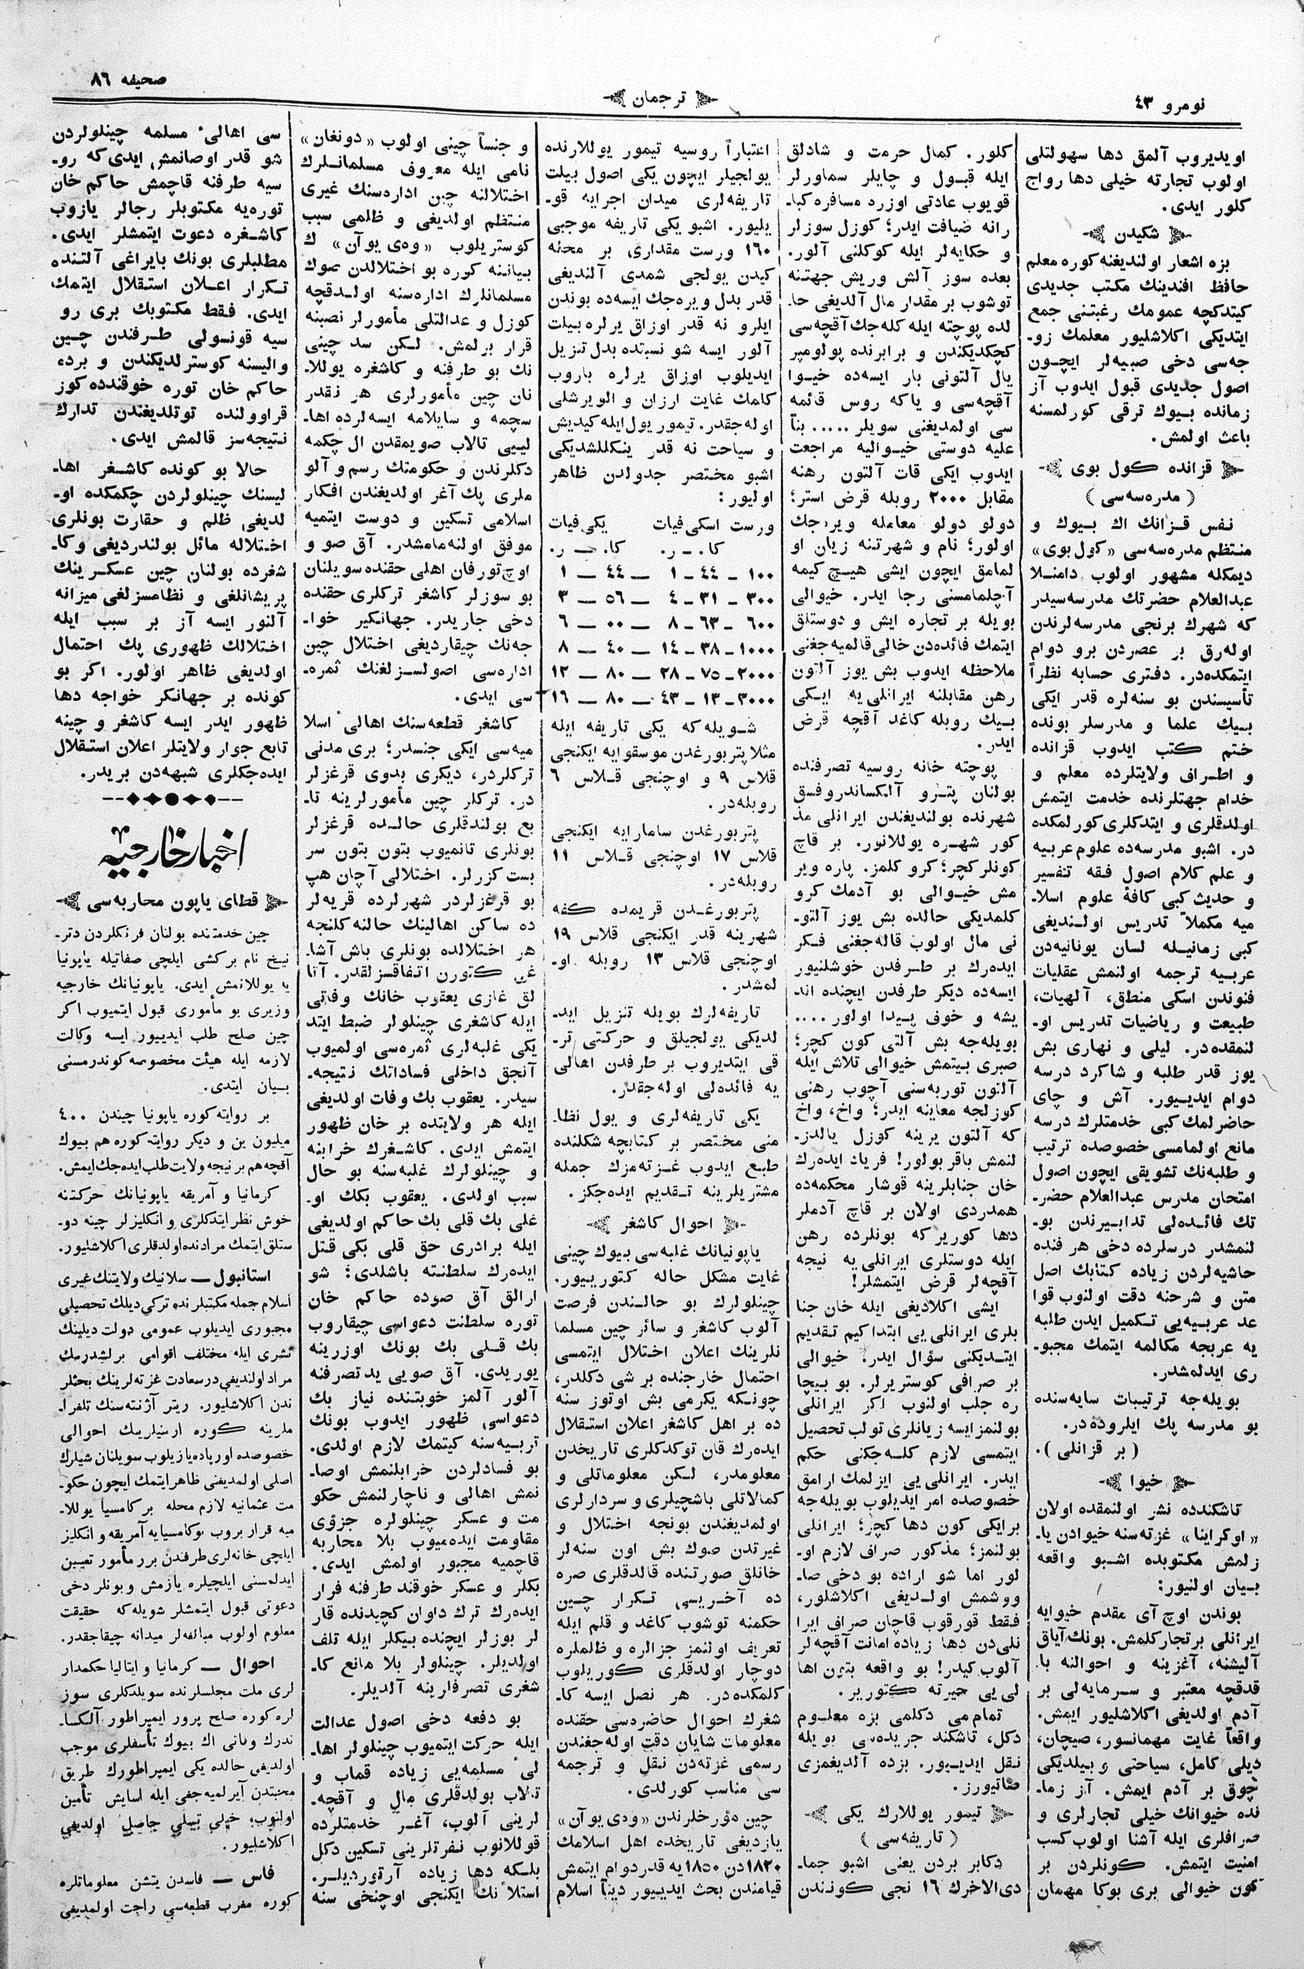 نومرو ٤٣
ترجمان
صحيفه ٨٦
اويديروب آلمق دها سهولتلى
اولوب تجارته خيلى دها رواج
كلور ايدى.
شكيدن
بزه اشعار اولنديغنه كوره معلم
حافظ افندينك مكتب جديدى
كيتدكچه عمومك رغبتنى جمع
ايتديكى اكلاشليور معلمك زو-
جه‌سى دخى صبيه‌لر ايچون
اصول جديدى قبول ايدوب آز
زمانده بيوك ترقى كورلمسنه
باعث اولمش.
قزانده كول بوى
(مدرسه‌سى)
نفس قزانك اك بيوك و
منتظم مدرسه‌سى «كول بوى»
ديمكله مشهور اولوب داملا
عبدالعلام حضرتك مدرسه‌سيدر
كه شهرك برنجى مدرسه‌لرندن
اوله‌رق بر عصردن برو دوام
ايتمكده‌در. دفترى حسابه نظراً
تأسيسندن بو سنه‌لره قدر ايكى
بيك علما و مدرسلر بونده
ختم كتب ايدوب قزانده
و اطراف ولايتلرده معلم و
خدام جهتلرنده خدمت ايتمش
اولدقلرى و ايتدكلرى كورلمكده
در. اشبو مدرسه‌ده علوم عربيه
و علم كلام اصول فقه تفسير
و حديث كبى كافهٔ علوم اسلا-
ميه مكملاً تدريس اولنديغى
كبى زمانيله لسان يونانيه‌دن
عربيه ترجمه اولنمش عقليات
فنوندن اسكى منطق، آلهيات،
طبيعت و رياضيات تدريس او-
لنمقده‌در. ليلى و نهارى بش
يوز قدر طلبه و شاكرد درسه
دوام ايدييور. آش و چاى
حاضرلمك كبى خدمتلرك درسه
مانع اولمامسى خصوصده ترتيب
و طلبه‌نك تشويقى ايچون اصول
امتحان مدرس عبدالعلام حضر-
تك فائده‌لى تدابيرندن بو-
لنمشدر درسلرده دخى هر فنده
حاشيه‌لردن زياده كتابك اصل
متن و شرحنه دقت اولنوب قوا
عد عربيه‌يى تكميل ايدن طلبه
يه عربجه مكالمه ايتمك مجبو-
رى ايدلمشدر.
بويله‌جه ترتيبات سايه‌سنده
بو مدرسه پك ايلروده‌در.
(بر قزانلى).
خيوا
تاشكندده نشر اولنمقده اولان
«اوكراينا» غزته‌سنه خيوادن يا-
زلمش مكتوبده اشبو واقعه
بيان اولنيور:
بوندن اوچ آى مقدم خيوايه
ايرانلى بر تجار كلمش. بونك آياق
آليشنه، آغزينه و احوالنه با
قدقچه معتبر و سرمايه‌لى بر
آدم اولديغى اكلاشليور ايمش.
واقعاً غايت مهمانسور، صيچان،
ديلى كامل، سياحتى و بيلديكى
چوق بر آدم ايمش. آز زما-
نده خيوانك خيلى تجارلرى و
صرافلرى ايله آشنا اولوب كسب
امنيت ايتمش. كونلردن بر
كون خيوالى برى بوكا مهمان
كلور. كمال حرمت و شادلق
ايله قبول و چايلر سماورلر
قويوب عادتى اوزره مسافره كبا-
رانه ضيافت ايدر؛ كوزل سوزلر
و حكايه‌لر ايله كوكلنى آلور.
بعده سوز آلش وريش جهتنه
توشوب بر مقدار مال آلديغى حا-
لده پوچته ايله كله‌جك آقچه‌سى
كچكديكندن و برابرنده پولومپر
يال آلتونى بار ايسه‌ده خيوا
آقچه‌سى و ياكه روس قائمه
سى اولمديغنى سويلر..... بنأ
عليه دوستى خيواليه مراجعت
ايدوب ايكى قات آلتون رهنه
مقابل ٢٠٠٠ روبله قرض استر؛
دولو دولو معامله ويره‌جك
اولور؛ نام و شهرتنه زيان او
لمامق ايچون ايشى هيچ كيمه
آچلمامسنى رجا ايدر. خيوالى
بويله بر تجاره ايش و دوستلق
ايتمك فائده‌دن خالى قالميه‌جغنى
ملاحظه ايدوب بش يوز آلتون
رهن مقابلنه ايرانلى‌يه ايكى
بيك روبله كاغد آقچه قرض
ايدر.
پوچته خانه روسيه تصرفنده
بولنان پترو آلكساندروفسق
شهرنده بولنديغندن ايرانلى مذ
كور شهره يوللانور. بر قاچ
كونلر كچر؛ كرو كلمز. پاره وير
مش خيوالى بو آدمك كرو
كلمديكى حالده بش يوز آلتو-
نى مال اولوب قاله‌جغنى فكر
ايده‌رك بر طرفدن خوشلنيور
ايسه‌ده ديكر طرفدن ايچنده اند
يشه و خوف پيدا اولور....
بويله‌جه بش آلتى كون كچر؛
صبرى بيتمش خيوالى تلاش ايله
آلتون توربه‌سنى آچوب رهنى
كوزلجه معاينه ايدر؛ واخ، واخ
كه آلتون يرينه كوزل يالدز-
لنمش باقر بولور! فرياد ايده‌رك
خان جنابلرينه قوشار محكمه‌ده
همدردى اولان بر قاچ آدملر
دها كوريركه بونلرده رهن
ايله دوستلرى ايرانلى‌يه نيچه
آقچه‌لر قرض ايتمشلر!
ايشى اكلاديغى ايله خان جنا
بلرى ايرانلى يى ابتدا كيم تقديم
ايتديكنى سؤال ايدر. خيوالى
بر صرافى كوستريرلر. بو بيچا
ره جلب اولنوب اكر ايرانلى
بولنمز ايسه زيانلرى تولب تحصيل
ايتمسى لازم كله‌جكنى حكم
ايدر. ايرانلى يى ايزلمك ارامق
خصوصده امر ايديلوب بويله‌جه
بر ايكى كون دها كچر؛ ايرانلى
بولنمز؛ مذكور صراف لازم او-
لور اما شو اراده بو دخى صا-
ووشمش اولديغى اكلاشلور،
فقط قورقوب قاچان صراف ايرا
نلى‌دن دها زياده امانت آقچه‌لر
آلوب كيدر! بو واقعه بتون اها
لى يى حيرته كتورير.
تمام مى دكلمى بزه معلوم
دكل، تاشكند جريده‌سى بويله
نقل ايدييور. بزده آلديغمزى
صاتيورز.
تيمور يوللارك يكى
(تاريفه‌سى)
دكابر بردن يعنى اشبو جما-
دى‌الاخرك ١٦ نجى كونندن
اعتباراً روسيه تيمور يوللارنده
يولجيلر ايچون يكى اصول بيلت
تاريفه‌لرى ميدان اجرايه قو-
يليور. اشبو يكى تاريفه موجبى
١٦٠ ورست مقدارى بر محله
كيدن يولجى شمدى آلنديغى
قدر بدل ويره‌جك ايسه‌ده بوندن
ايلرو نه قدر اوزاق يرلره بيلت
آلور ايسه شو نسبتده بدل تنزيل
ايديلوب اوزاق يرلره باروب
كلمك غايت ارزان و الويرشلى
اوله‌جقدر. تيمور يول ايله كيديش
و سياحت نه قدر ينكللشديكى
اشبو مختصر جدولدن ظاهر
اوليور:
ورست اسكى فيات يكى فيات
كا. — ر. كا. — ر.
١٠٠ - ٤٤ - ١ — ٤٤ — ١
٣٠٠ - ٣١ - ٤ — ٥٦ — ٣
٦٠٠ - ٦٣ - ٨ — ٠٠ — ٦
١٠٠٠ - ٣٨ - ١٤ — ٤٠ — ٨
٢٠٠٠ - ٧٥ - ٢٨ — ٨٠ — ١٢
٣٠٠٠ - ١٣ - ٤٣ — ٨٠ — ١٦
شويله‌كه يكى تاريفه ايله
مثلا پتربورغدن موسقوايه ايكنجى
قلاس ٩ و اوچنجى قلاس ٦
روبله‌در.
پتربورغدن سامارايه ايكنجى
قلاس ١٧ اوچنجى قلاس ١١
روبله‌در.
پتربورغدن قريمده كفه
شهرينه قدر ايكنجى قلاس ١٩
اوچنجى قلاس ١٣ روبله او-
لمشدر.
تاريفه‌لرك بويله تنزيل ايد-
لديكى يولجيلق و حركتى تر-
قى ايتديروب بر طرفدن اهالى
يه فائده‌لى اوله‌جقدر.
يكى تاريفه‌لرى و يول نظا-
منى مختصر بر كتابچه شكلنده
طبع ايدوب غزته‌مزك جمله
مشتريلرينه تقديم ايده‌جكز.
احوال كاشغر
ياپونيانك غلبه‌سى بيوك چينى
غايت مشكل حاله كتوريور.
چينلولرك بو حالندن فرصت
آلوب كاشغر و سائر چين مسلما
نلرينك اعلان اختلال ايتمسى
احتمال خارجنده بر شى دكلدر،
چونكه يكرمى بش اوتوز سنه
ده بر اهل كاشغر اعلان استقلال
ايده‌رك قان توكدكلرى تاريخدن
معلومدر، لكن معلوماتلى و
كمالاتلى باشچيلرى و سردارلرى
اولمديغندن بونجه اختلال و
غيرتدن صوك بش اون سنه‌لر
خانلق صورتنده قالدقلرى صره
ده آخريسى تكرار چين
حكمنه توشوب كاغد و قلم ايله
تعريف اولنمز جزالره و ظلملره
دوچار اولدقلرى كوريلوب
كلمكده‌در. هر نصل ايسه كا-
شغرك احوال حاضره‌سى حقنده
معلومات شايان دقت اوله‌جغندن
رسمى غزته‌دن نقل و ترجمه
سى مناسب كورلدى.
چين مؤرخلرندن «ودى يوآن»
يازديغى تاريخده اهل اسلامك
١٨٢٠دن ١٨٥٠يه قدر دوام ايتمش
قيامندن بحث ايدييور ديناً اسلام
و جنساً چينى اولوب «دونغان»
نامى ايله معروف مسلمانلرك
اختلالنه چين اداره‌سنك غيرى
منتظم اولديغى و ظلمى سبب
كوستريلوب «وه‌ى يوآن» ك
بياننه كوره بو اختلالدن صوك
مسلمانلرك اداره‌سنه اولدقچه
كوزل و عدالتلى مأمورلر نصبنه
قرار برلمش. لكن سد چينى
نك بو طرفنه و كاشغره يوللا-
نان چين مأمورلرى هر نقدر
سچمه و سايلامه ايسه‌لرده اها-
لييى تالاب صويمقدن ال چكمه
دكلرندن و حكومتك رسم و آلو
ملرى پك آغر اولديغندن افكار
اسلامى تسكين و دوست ايتميه
موفق اولنه‌مامشدر. آق صو و
اوچ تورفان اهلى حقنده سويلنان
بو سوزلر كاشغر تركلرى حقنده
دخى جاريدر. جهانكير خوا-
جه‌نك چيقارديغى اختلال چين
اداره‌سى اصولسزلغنك ثمره-
سى ايدى.
كاشغر قطعه‌سنك اهالىٔ اسلا
ميه‌سى ايكى جنسدر؛ برى مدنى
تركلردر، ديكرى بدوى قرغزلر
در. تركلر چين مأمورلرينه تا-
بع بولندقلرى حالده قرغزلر
بونلرى تانميوب بتون بتون سر
بست كزرلر. اختلالى آچان هپ
بو قرغزلردر شهرلرده قريه‌لر
ده ساكن اهالينك حالنه كلنجه
هر اختلالده بونلرى باش آشا-
غى كتورن اتفاقسزلقدر. آتا
لق غازى يعقوب خانك وفاتى
ايله كاشغرى چينلولر ضبط ايتد
يكى غلبه‌لرى ثمره‌سى اولميوب
آنجق داخلى فساداتك نتيجه-
سيدر. يعقوب بك وفات اولديغى
ايله هر ولايتده بر خان ظهور
ايتمش ايدى. كاشغرك خرابنه
و چينلولرك غلبه‌سنه بو حال
سبب اولدى. يعقوب بكك او-
غلى بك قلى بك حاكم اولديغى
ايله برادرى حق قلى بكى قتل
ايده‌رك سلطنته باشلدى؛ شو
ارالق آق صوده حاكم خان
توره سلطنت دعواسى چيقاروب
بك قلى بك بونك اوزرينه
يوريدى. آق صويى يد تصرفنه
آلور آلمز خوتنده نياز بك
دعواسى ظهور ايدوب بونك
تربيه‌سنه كيتمك لازم اولدى.
بو فسادلردن خرابلنمش اوصا-
نمش اهالى و ناچارلنمش حكو
مت و عسكر چينلولره جزؤى
مقاومت ايده‌ميوب بلا محاربه
قاچميه مجبور اولمش ايدى.
بكلر و عسكر خوقند طرفنه فرار
ايده‌رك ترك داوان كچيدنده قار
لر بوزلر ايچنده بيكلر ايله تلف
اولديلر. چينلولر بلا مانع كا-
شغرى تصرفلرينه آلديلر.
بو دفعه دخى اصول عدالت
ايله حركت ايتميوب چينلولر اها-
لىٔ مسلمه‌يى زياده قماب و
تالاب بولدقلرى مال و آقچه-
لرينى آلوب، آغر خدمتلرده
قوللانوب نفرتلرينى تسكين دكل
بلكه دها زياده آرتورديلر.
استلانك ايكنجى اوچنجى سنه
سى اهالىٔ مسلمه چينلولردن
شو قدر اوصانمش ايدى كه رو-
سيه طرفنه قاچمش حاكم خان
توره‌يه مكتوبلر رجالر يازوب
كاشغره دعوت ايتمشلر ايدى.
مطلبلرى بونك بايراغى آلتنده
تكرار اعلان استقلال ايتمك
ايدى. فقط مكتوبك برى رو
سيه قونسولى طرفندن چين
واليسنه كوسترلديكندن و برده
حاكم خان توره خوقندده كوز
قراوولنده توتلديغندن تدارك
نتيجه‌سز قالمش ايدى.
حالا بو كونده كاشغر اها-
ليسنك چينلولردن چكمكده او-
لديغى ظلم و حقارت بونلرى
اختلاله مائل بولندرديغى وكا-
شغرده بولنان چين عسكرينك
پريشانلغى و نظامسزلغى ميزانه
آلنور ايسه آز بر سبب ايله
اختلالك ظهورى پك احتمال
اولديغى ظاهر اولور. اكر بو
كونده بر جهانكر خواجه دها
ظهور ايدر ايسه كاشغر و چينه
تابع جوار ولايتلر اعلان استقلال
ايده‌جكلرى شبهه‌دن بريدر.
اخبار خارجيه
قطاى ياپون محاربه‌سى
چين خدمتنده بولنان فرنكلردن دتر-
نيخ نام بر كشى ايلچى صفاتيله ياپونيا
يه يوللانمش ايدى. ياپونيانك خارجيه
وزيرى بو مأمورى قبول ايتميوب اكر
چين صلح طلب ايدييور ايسه وكالت
لازمه ايله هيئت مخصوصه كوندرمسنى
بيان ايتدى.
بر روايته كوره ياپونيا چيندن ٤٠٠
ميليون ين و ديكر روايته كوره هم بيوك
آقچه هم بر نيچه ولايت طلب ايده‌جك ايمش.
كرمانيا و آمريقه ياپونيانك حركتنه
خوش نظر ايتدكلرى و انكليزلر چينه دو-
ستلق ايتمك مرادنده اولدقلرى اكلاشليور.
استانبول — سلانيك ولايتنك غيرى
اسلام جمله مكتبلرنده تركى ديلك تحصيلى
مجبورى ايديلوب عمومى دولت ديلينك
نشرى ايله مختلف اقوامى برلشدرمك
مراد اولنديغى درسعادت غزته‌لرينك بحثلر
ندن اكلاشليور. ريتر آژنته‌سنك تلغرا-
ملرينه كوره ارمنيلرينك احوالى
خصوصده اوروپاده يازيلوب سويلنان شيلرك
اصلى اولمديغنى ظاهر ايتمك ايچون حكو-
مت عثمانيه لازم محله بر كامسيا يوللا-
ميه قرار بروب بو كامسيايه آمريقه و انكليز
ايلچى خانه‌لرى طرفندن برر مأمور تعيين
ايدلمسنى ايلچيلره يازمش و بونلر دخى
دعوتى قبول ايتمشلر شويله‌كه حقيقت
معلوم اولوب مبالغه‌لر ميدانه چيقاجقدر.
احوال — كرمانيا و ايتاليا حكمدار
لرى ملت مجلسلرنده سويلدكلرى سوز
لره كوره صلح پرور ايمپراطور آلكسا-
ندرك وفاتى اك بيوك تأسفلرى موجب
اولديغى حالده يكى ايمپراطورك طريق
محبتدن آيرلميه‌جغى ايله اسايش تأمين
اولنوب، خيلى تسلى حاصل اولديغى
اكلاشليور.
فاس — فاسدن يتشن معلوماتلره
كوره مغرب قطعه‌سى راحت اولمديغى